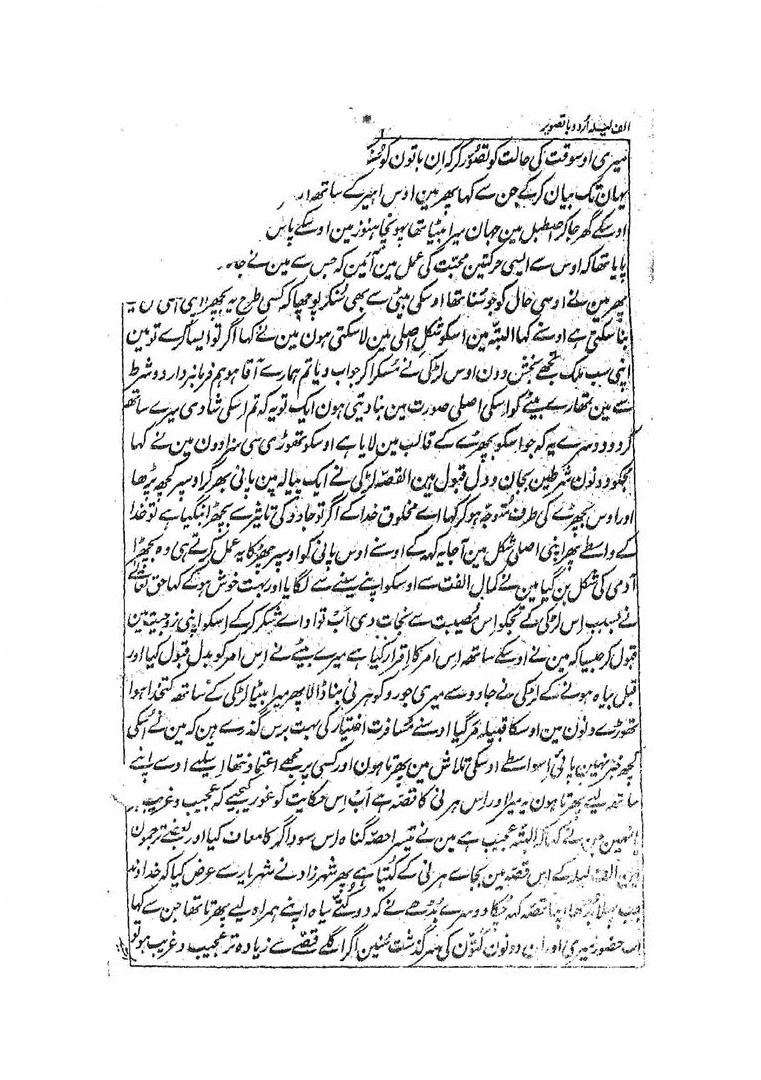 الف لیلہ اردو با تصویر
میری اوسوقت کی حالت کو تصور کر کہ ان باتون کو سُنا
یہان تک بیان کر کے جن سے کہا پھر مین اوس اہیر کے ساتھ
اوسکے گھر جا کر اصطبل مین جہان میرا بیٹا تھا پہونچا ہنوز مین اوسکے پاس
پایا تھا کہ اوس سے ایسی حرکتین محبت کی عمل مین آئین کہ جس سے مین نے
پھر مین نے اوسی حال کو جو سُنا تھا اوسکی بیٹی سے بھی سُنکر پوچھا کہ کسی طرح یہ بچھڑا
بنا سکتی ہے اوسنے کہا البتہ مین اسکو شکل اصلی مین لا سکتی ہون مین نے کہا اگر تو ایسا کرے تو مین
اپنی سب ملک تجھے بخش دون اوس لڑکی نے مسکرا کر جواب دیا تم ہمارے آقا ہو ہم فرمانبردار دو شرط
سے مین تمھارے بیٹے کو اسکی اصلی صورت مین بنا دیتی ہون ایک تو یہ کہ تم اسکی شادی میرے ساتھ
کردو دوسرے یہ کہ جو اسکو بچھڑے کے قالب مین لایا ہے اوسکو تھوڑی سی سزا دون مین نے کہا
مجکو دونون شرطین بجان و دل قبول ہین القصہ لڑکی نے ایک پیالہ مین پانی بھر کر اوسپر کچھ پڑھا
اور اوس بچھڑے کی طرف متوجہ ہو کر کہا اے مخلوق خدا کے اگر تو جادو کی تاثیر سے بچھڑا بنگیا ہے تو خدا
کے واسطے پھر اپنی اصلی شکل مین آجا یہ کہہ کے اوسنے اوس پانی کو اوسپر چھڑکا یہ عمل کرتے ہی وہ بچھڑا
آدمی کی شکل بن گیا مین نے کمال الفت سے اوسکو اپنے سینے سے لگایا اور بہت خوش ہو کے کہا حق تعالےٰ
نے بسبب اس لڑکی کے تجکو اس مصیبت سے نجات دی اب تو اداے شکر کر کے اسکو اپنی زوجیت مین
قبول کر جیسا کہ مین نے اوسکے ساتھ اس امر کا اقرار کیا ہے میرے بیٹے نے اس امر کو بدل قبول کیا اور
قبل بیاہ ہونے کے لڑکی نے جادو سے میری جورو کو ہرنی بنا ڈالا پھر میرا بیٹا لڑکی کے ساتھ کتخدا ہوا
تھوڑے دنون مین اوسکا قبیلہ مر گیا اوسنے مسافرت اختیار کی بہت برس گذرے ہین کہ مین نے اُسکی
کچھ خبر نہین پائی اسواسطے اوسکی تلاش مین پھرتا ہون اور کسی پر مجھے اعتماد نتھا اسلیے اوسے اپنے
ساتھ لیے پھرتا ہون یہ میرا اور اس ہرنی کا قصہ ہے اب اس حکایت کو غور کیجیے کہ عجیب و غریب
نہین جن نے کہا البتہ عجیب ہے مین نے تیسرا حصہ گناہ اس سوداگر کا معاف کیا اور بعضے ترجمون
مین الف لیلہ کے اس قصہ مین بجاے ہرنی کے کُتیا ہے پھر شہرزاد نے شہریار سے عرض کیا کہ خداوند
جب پہلا بڑھا اپنا قصہ کہہ چکا دوسرے بڈھے نے کہ دو کُتے سیاہ اپنے ہمراہ لیے پھرتا تھا جن سے کہا
اب حضور میری اور ان دونون کتون کی سرگذشت سنین اگر اگلے قصے سے زیادہ تر عجیب و غریب ہو تو